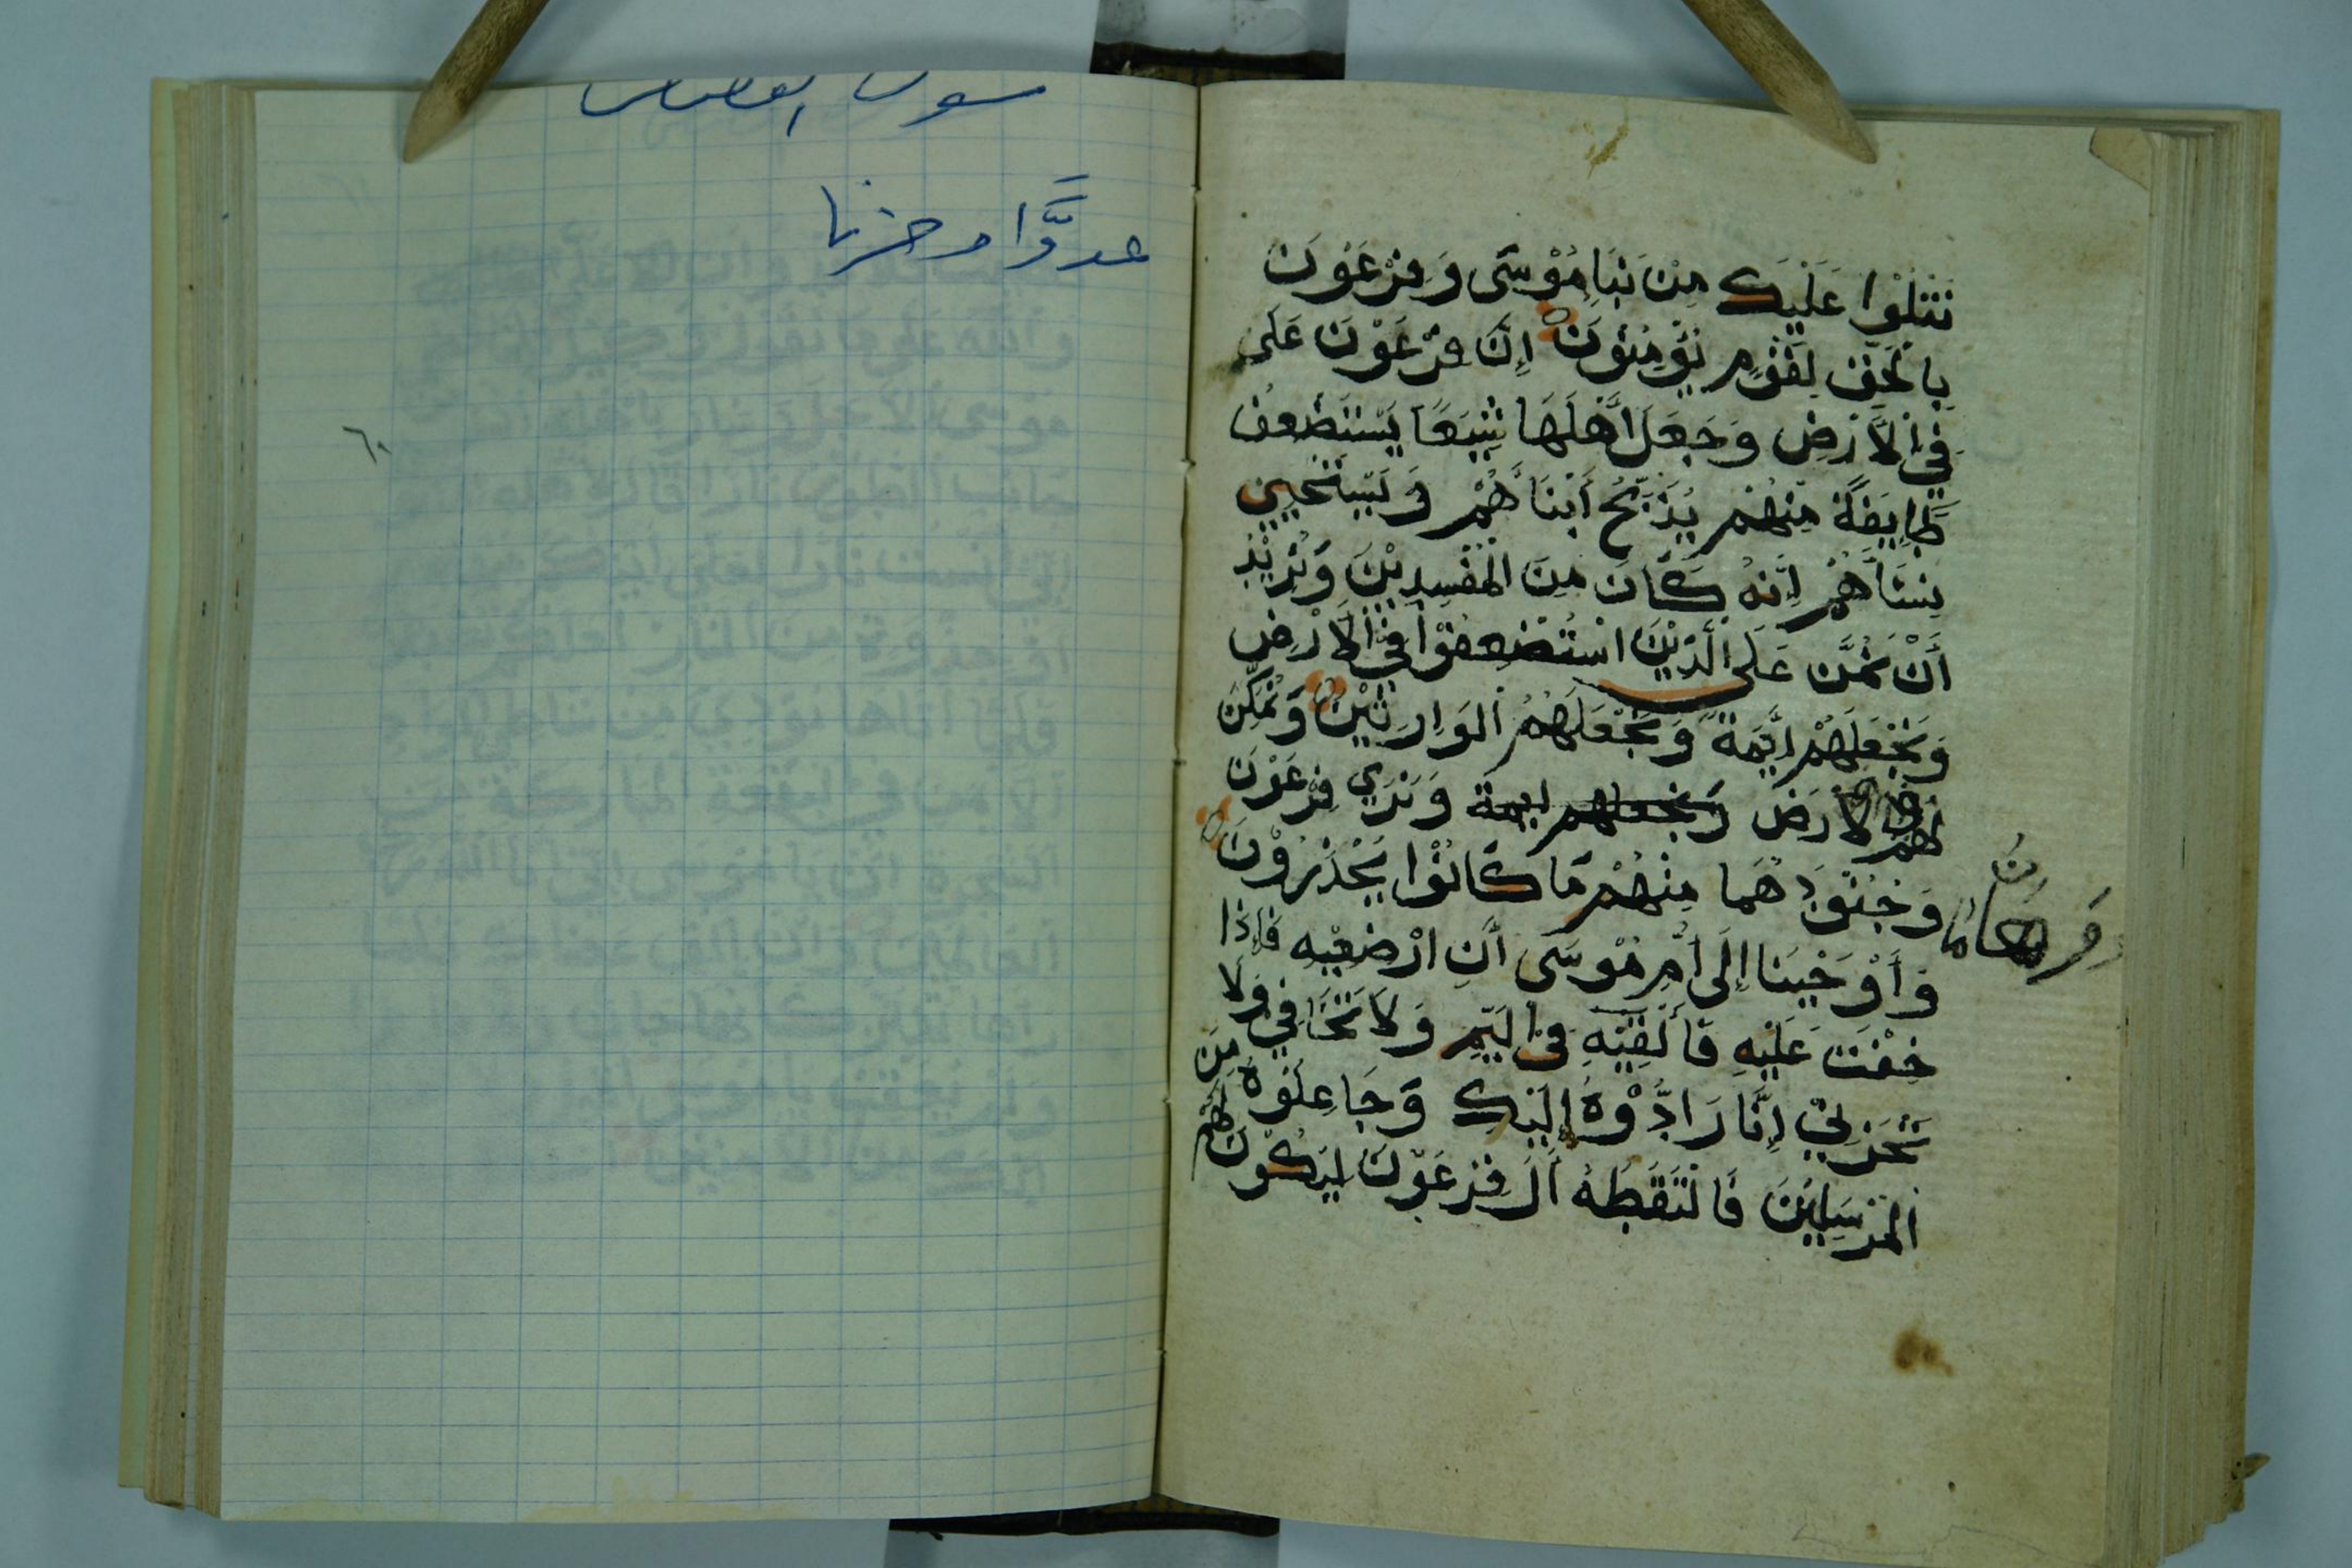 نَتْلُوْا عَلَيْكَ مِنْ نَبَاِ مُوْسَى وَفِرْعَوْنَ
بِالْحَقِّ لِقَوْمٍ يُؤْمِنُوْنَ إِنَّ فِرْعَوْنَ عَلَى
فِي الْأَرْضِ وَجَعَلَ أَهْلَهَا شِيَعًا يَسْتَضْعِفُ
طَايِفَةً مِنْهُمْ يُذَبِّحُ أَبْنَاَهُمْ وَيَسْتَحْيِيْ
نِسَاَهُمْ إِنَّهُ كَانَ مِنَ الْمُفْسِدِيْنَ وَنُرِيْدُ
أَنْ نَمُنَّ عَلَى الَّذِيْنَ اسْتُضْعِفُوْا فِي الْأَرْضِ
وَنَجْعَلَهُمْ اَيِمَّةً وَنَجْعَلَهُمُ الْوَارِثِيْنَ وَنُمَكِّنَ
لَهُمْ فِي الْأَرْضِ وَنجعلهم ايمة وَنُرِيَ فِرْعَوْنَ
وَهَامَانَ
وَجُنُوْدَهُمَا مِنْهُمْ مَا كَانُوْا يَحْذَرُوْنَ
وَأَوْحَيْنَا إِلَى أُمِّ مُوْسَى أَنِ ارْضِعِيْهِ فَإِذَا
خِفْتِ عَلَيْهِ فَأَلْقِيْهِ فِي الْيَمِّ وَلَا تَخَافِيْ وَلَا
تَحْزَنِيْ إِنَّا رَادُّوْهُ إِلَيْكِ وَجَاعِلُوْهُ مِنَ
الْمُرْسَلِيْنَ فَالْتَقَطَهُ اَلُ فِرْعَوْنَ لِيَكُوْنَ لَهُمْ
سورة القصص
عدوَّا وحزنا
٦٠